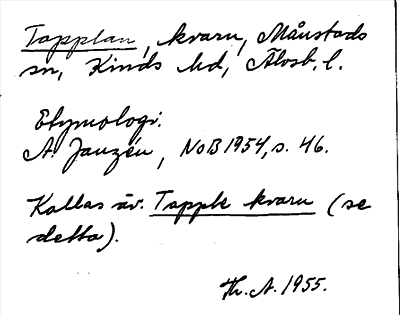 Tapplan, kvarn, Månstads
sn, Kinds hd, Älvsb. l.
Etymologi.
A. Janzén, NoB 1954, s. 46.
Kallas äv. Tapple kvarn (se
detta).
Th. A. 1955.